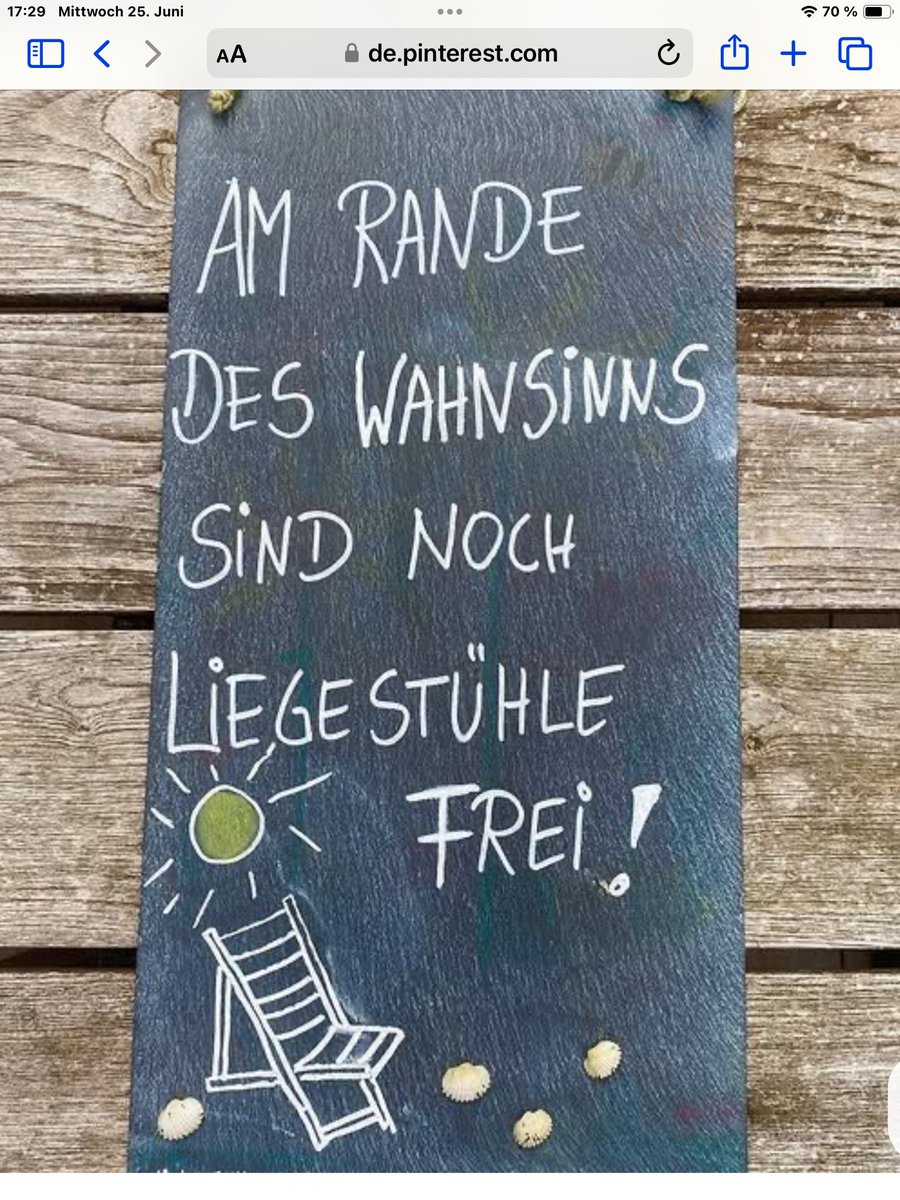 17:29 Mittwoch 25. Juni
70 %
AA de.pinterest.com
AM RANDE
DES WAHNSINNS
SIND NOCH
LIEGESTÜHLE
FREI!